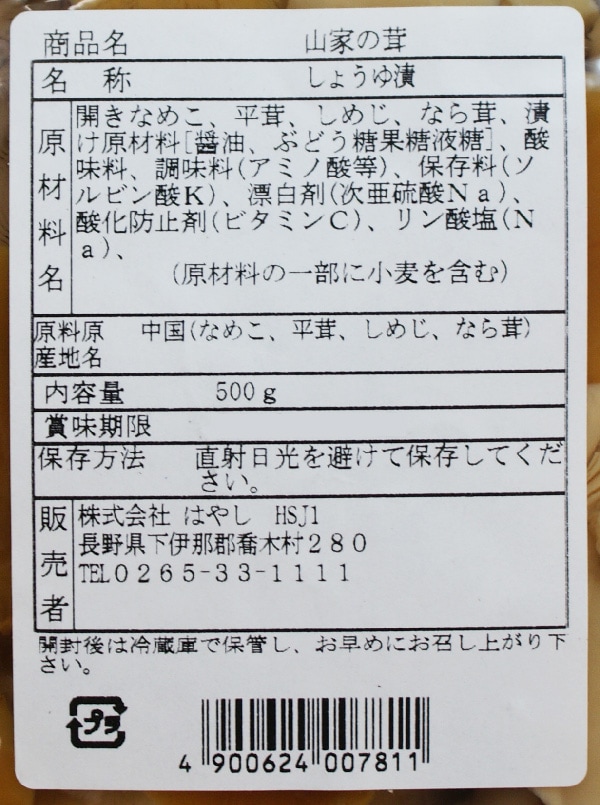 商品名 山家の茸
名 称 しょうゆ漬
原材料名
開きなめこ、平茸、しめじ、なら茸、漬
け原材料[醤油、ぶどう糖果糖液糖]、酸
味料、調味料(アミノ酸等)、保存料(ソ
ルビン酸K)、漂白剤(次亜硫酸Na)、
酸化防止剤(ビタミンC)、リン酸塩(N
a)、
(原材料の一部に小麦を含む)
原料原 中国(なめこ、平茸、しめじ、なら茸)
産地名
内容量 500g
賞味期限
保存方法 直射日光を避けて保存してくだ
さい。
販売者
株式会社 はやし HSJ1
長野県下伊那郡喬木村280
TEL0265-33-1111
開封後は冷蔵庫で保管し、お早めにお召し上がり下
さい。
プラ
4 900624 007811